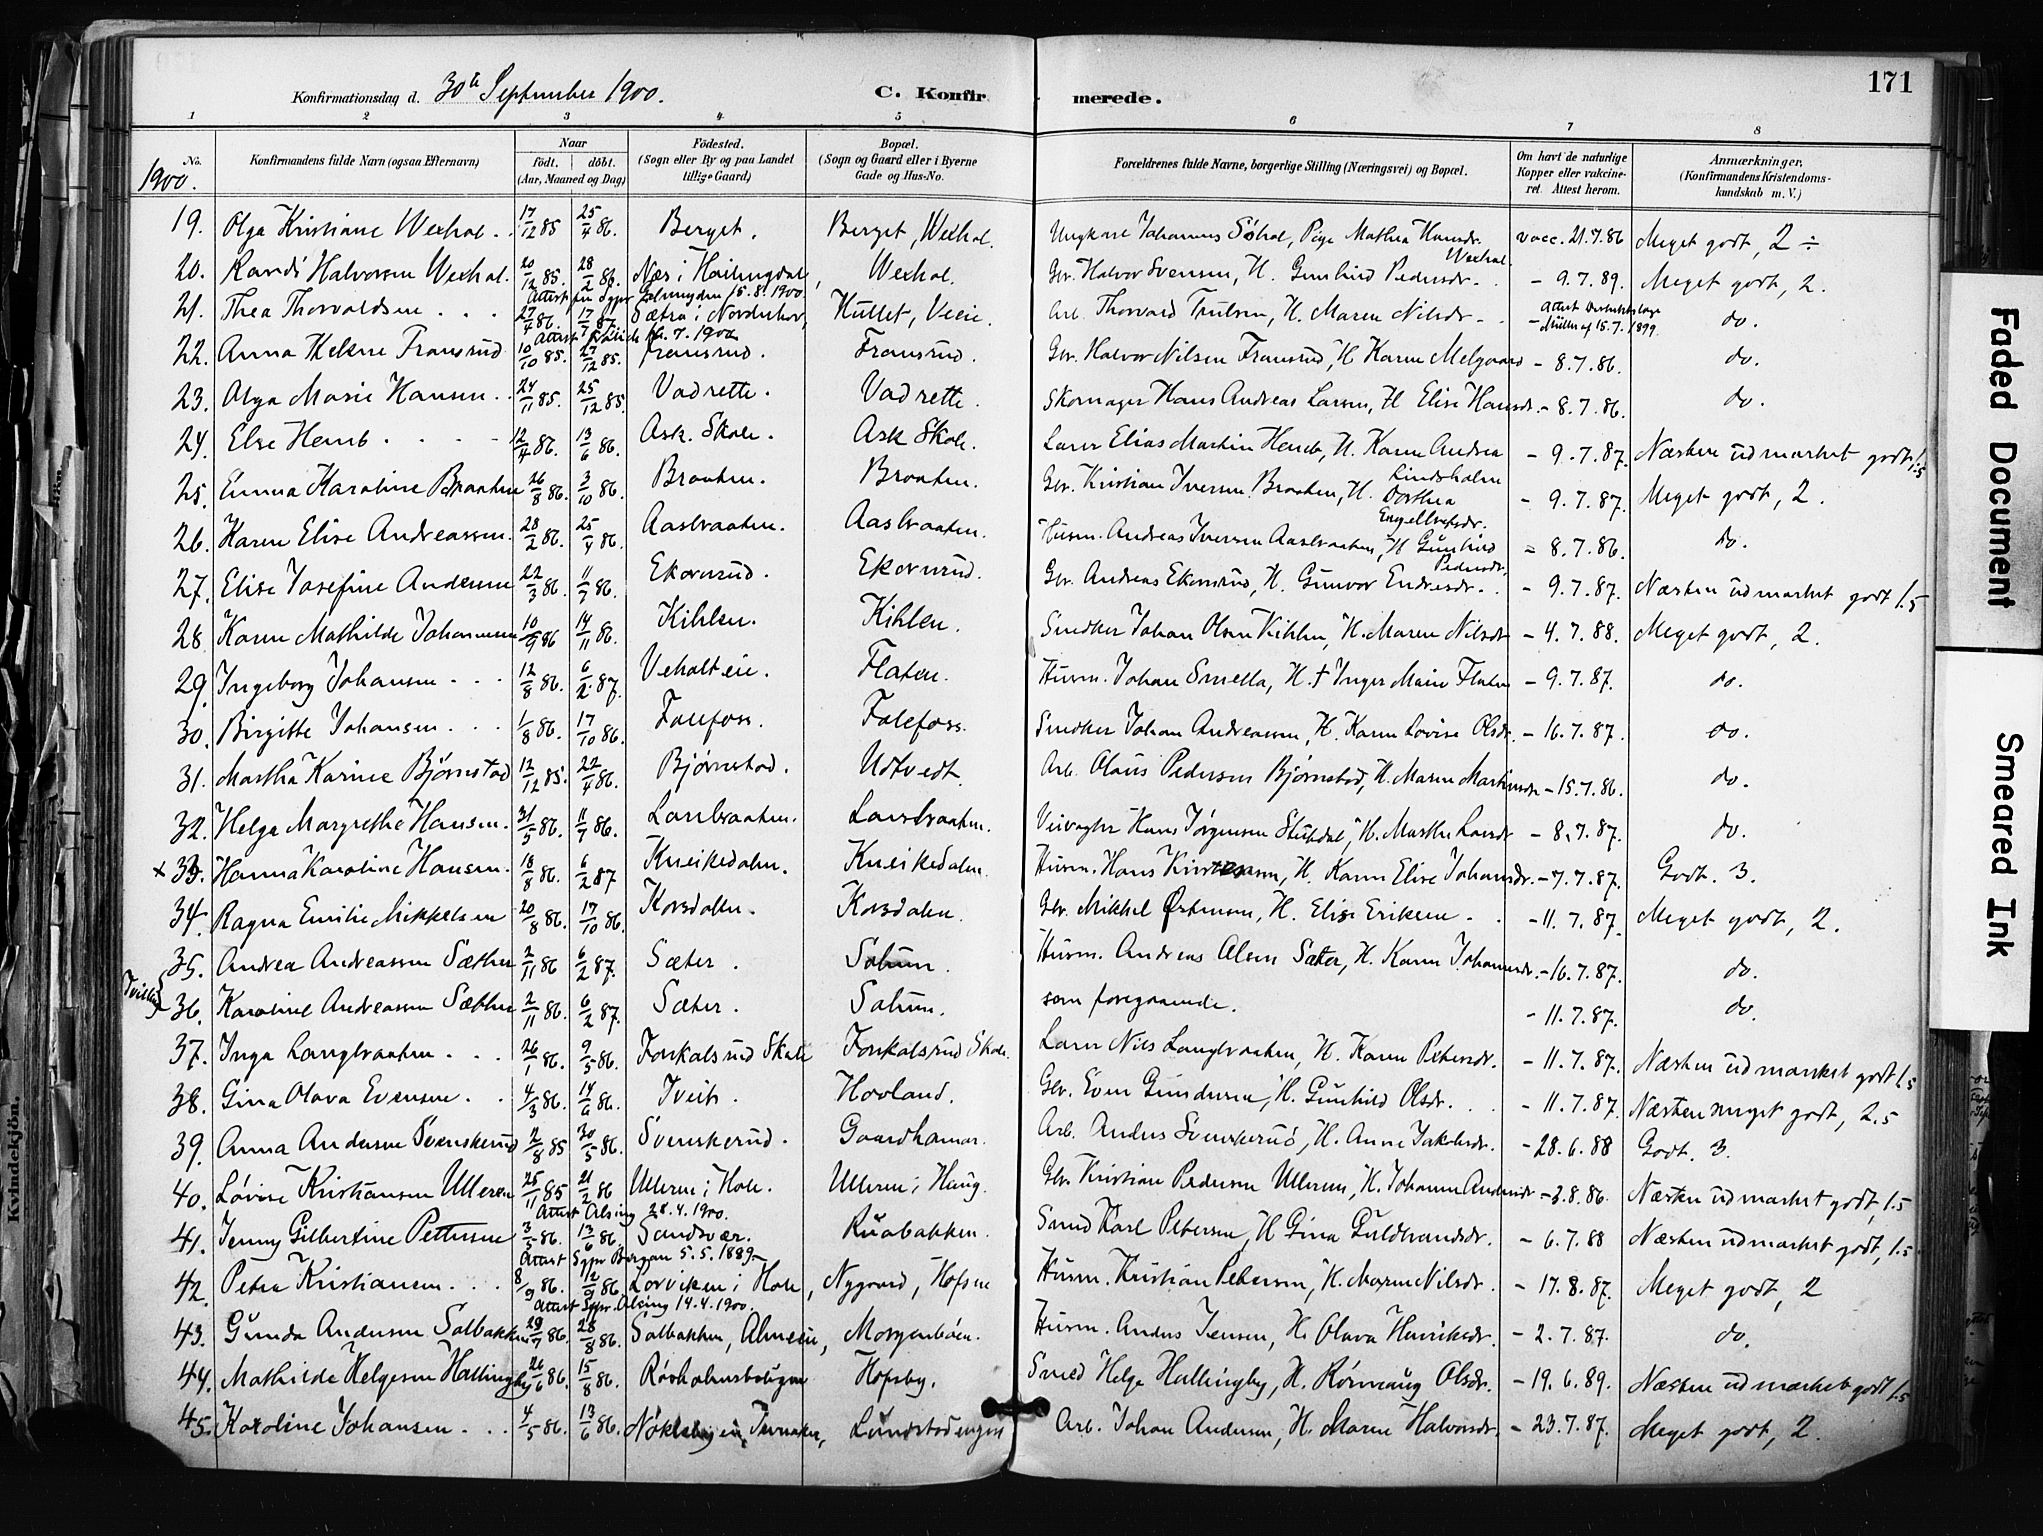 171
Konfirmationsdag d. 30te September 1900.
C. Konfirmerede.
1 2 3 4 5 6 7 8
No. Konfirmandens fulde Navn (ogsaa Efternavn) Naar født. døbt. (Aar, Maaned og Dag) Fødested. (Sogn eller By og paa Landet tillige Gaard) Bopæl. (Sogn og Gaard eller i Byerne Gade og Hus-No. Forældrenes fulde Navne, borgerlige Stilling (Næringsvei) og Bopæl. Om havt de naturlige Kopper eller vaccineret. Attest herom. Anmærkninger, (Konfirmandens Kristendomskundskab m. V.)
1900.
19. Olga Kristiane Wexhal. 17/12 85 25/4 86. Berget. Berget, Wexhal. Ungkarl Johannes Sohol, Pige Mathea Hansdr. Wexhal vacc. 21.7.86 Meget godt, 2 ÷
20. Randi Halvorsen Wexhal. 20/12 85. 28/2 86. Næs i Hallingdal, Wexhal. Gbr. Halvor Svensen, H. Gunhild Pedersdr. - 9.7.89. Meget godt, 2.
21. Thea Thorvaldsen 27/4 86. 17/7 87 Sætra i Norderhov, Hullet, Veie. Arb. Thorvard Trulsen, H. Maren Nilsdr - Attest 15.7.1899. do.
22. Anna Helene Fransrud 10/10 85. 27/12 85. Fransrud. Fransrud. Gbr. Halvor Nilsen Fransrud, H Karen Melgaard - 8.7.86. do.
23. Olga Marie Hansen 24/11 85. 25/12 85. Vadrette. Vadrette. Skomager Hans Andreas Larsen, H Elise Hansdr. - 8.7.86. do.
24. Else Hemb 12/4 86. 13/6 86. Ask. Skole. Ask Skole. Lærer Elias Martin Hemb, H. Karen Andrea Lindsholm - 9.7.87. Næsten udmærket godt, 1.5
25. Emma Karoline Braaten 26/8 86. 3/10 86. Braaten. Braaten. Gbr. Kristian Iversen Braaten, H. Dorthea Engelbretsdr. - 9.7.87. Meget godt, 2.
26. Karen Elise Andreassen. 28/2 86. 25/4 86. Aasbraaten. Aasbraaten. Husm. Andreas Iversen Aasbraaten, H Gunhild Pedersdr. - 8.7.86. do.
27. Elise Josefine Andersen 22/3 86. 11/7 86. Ekornrud. Ekornrud. Gbr. Andreas Ekornrud, H. Gunvor Endresdr. - 9.7.87. Næsten udmærket godt 1.5
28. Karen Mathilde Johannesen 10/9 86 14/11 86. Kihlen. Kihlen. Snedker Johan Olsen Kihlen, H. Maren Nilsdr - 4.7.88. Meget godt, 2.
29. Ingeborg Johansen 12/8 86. 6/2 87. Veholteie. Flaten. Husm. Johan Smella, H. † Inger Marie Flaten - 9.7.87. do.
30. Birgitte Johansen 1/8 86. 17/10 86. Folefoss. Folefoss. Snedker Johan Andreassen, H. Karen Lovise Olsdr. - 16.7.87. do.
31. Martha Karine Bjørnstad 12/12 85. 22/4 86. Bjørnstad. Udtvedt. Arb. Olaus Pedersen Bjørnstad, H. Maren Martinsdr - 15.7.86. do.
32. Helga Margrethe Hansen. 31/5 86. 11/7 86. Lonbraaten. Lonbraaten. Veivogter Hans Jørgensen Stubdal, H. Marthe Larsdr - 8.7.87. do.
x 33. Hanna Karoline Hansen. 18/8 86. 6/2 87 Kneikedalen. Kneikedalen. Husm. Hans Kristensen, H. Karen Elise Johansdr. - 7.7.87. Godt. 3.
34. Ragna Emilie Mikkelsen 20/8 86. 17/10 86. Korsdalen. Korsdalen. Gbr. Mikkel Østensen, H. Elise Eriksen - 11.7.87. Meget godt, 2.
35. Andrea Andreassen Sæther 2/11 86 6/2 87. Sæter. Solum. Husm. Andreas Olsen Sæter, H. Karen Johannesdr. - 16.7.87. do.
Tvilling 36. Karoline Andreassen Sæther 2/11 86. 6/2 87. Sæter. Solum. som foregaaende. - 11.7.87. do.
37. Inga Langbraaten 26/1 86. 9/5 86. Fonkalsrud Skole Fonkalsrud Skole. Lærer Nils Langbraaten, H. Karen Petersdr. - 11.7.87. Næsten udmærket godt 1.5
38. Gina Olava Evensen 4/3 86. 14/6 86. Tveit. Hovland. Gbr. Even Gundersen, H. Gunhild Olsdr. - 11.7.87. Næsten meget godt, 2.5
39. Anna Andersen Svenskerud 2/8 85 30/5 86. Svenskerud. Gaardhamar. Arb. Anders Svenskerud, H. Anne Jakobsdr. - 28.6.88 Godt. 3.
40. Lovise Kristiansen Ulleren 25/11 85 21/2 86 Ulleren i Hole. Ulleren i Haug. Gbr. Kristian Pedersen Ulleren, H. Johanne Andersdr - 3.8.86. Næsten udmærket godt, 1.5
Attest Alsing 28.4.1900.
41. Jenny Gilbertine Pettersen 3/5 86. 13/6 86. Sandsvær. Ruabakken. Smed Karl Petersen, H Gina Guldbrandsdr. - 6.7.88 Næsten udmærket godt, 1.5
Attest Sgpr Borgan 5.5.1889.
42. Petra Kristiansen 8/9 86. 12/9 86 Lorviken i Hole, Nygaard, Hofsen Husm. Kristian Petersen, H. Maren Nilsdr. - 17.8.87. Meget godt, 2
Attest Sgpr. Alsing 14.4.1900.
43. Gunda Andersen Solbakken 29/7 86. 28/8 86. Solbakken, Almeie, Morgenbøen. Husm. Anders Jensen, H. Olava Henriksdr. - 2.7.87. do.
44. Mathilde Helgesen Hallingby 26/6 86. 15/8 86. Hofsby. Smed Helge Hallingby, H. Rønnaug Olsdr. - 19.6.89. Næsten udmærket godt 1.5
45. Karoline Johansen 4/5 86. 13/6 86. Lundstadengen Arb. Johan Andersen, H. Maren Halvorsdr. - 23.7.87. Meget godt, 2.
Kvindekjön.
Faded Document
Smeared Ink